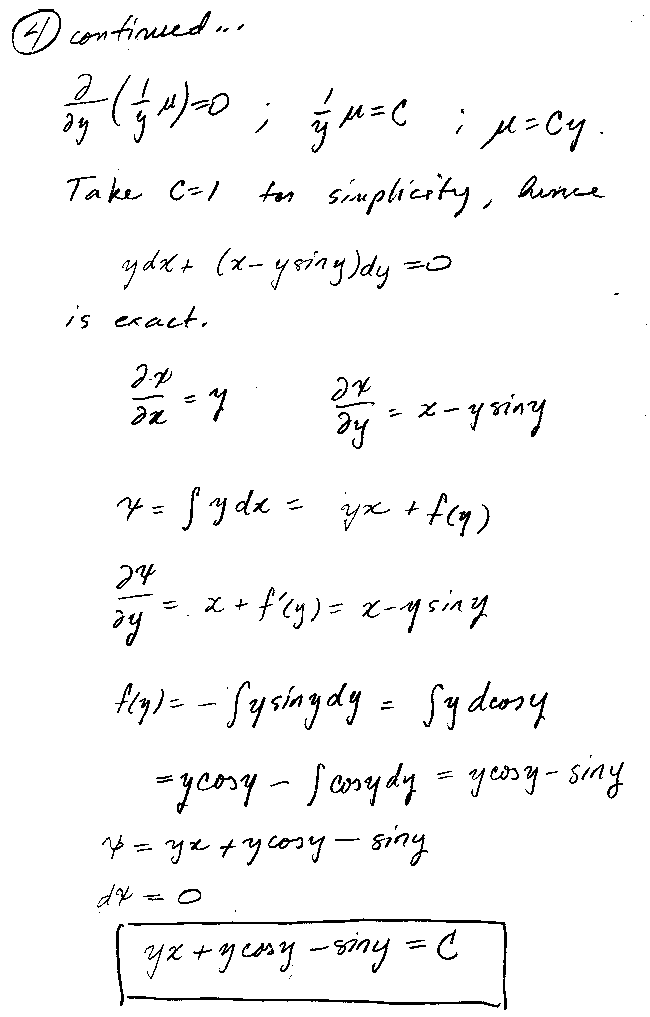 ④ continued...
∂/∂y (1/y μ)=0 ; 1/y μ=C ; μ=Cy.
Take C=1 for simplicity, hence
ydx+ (x-ysiny)dy =0
is exact.
∂ψ/∂x = y    ∂ψ/∂y = x-ysiny
ψ = ∫ydx = yx + f(y)
∂ψ/∂y = x + f'(y) = x-ysiny
f(y)= -∫ysinydy = ∫ydcosy
=ycosy - ∫cosydy = ycosy-siny
ψ = yx +ycosy - siny
dψ = 0
yx +ycosy -siny = C